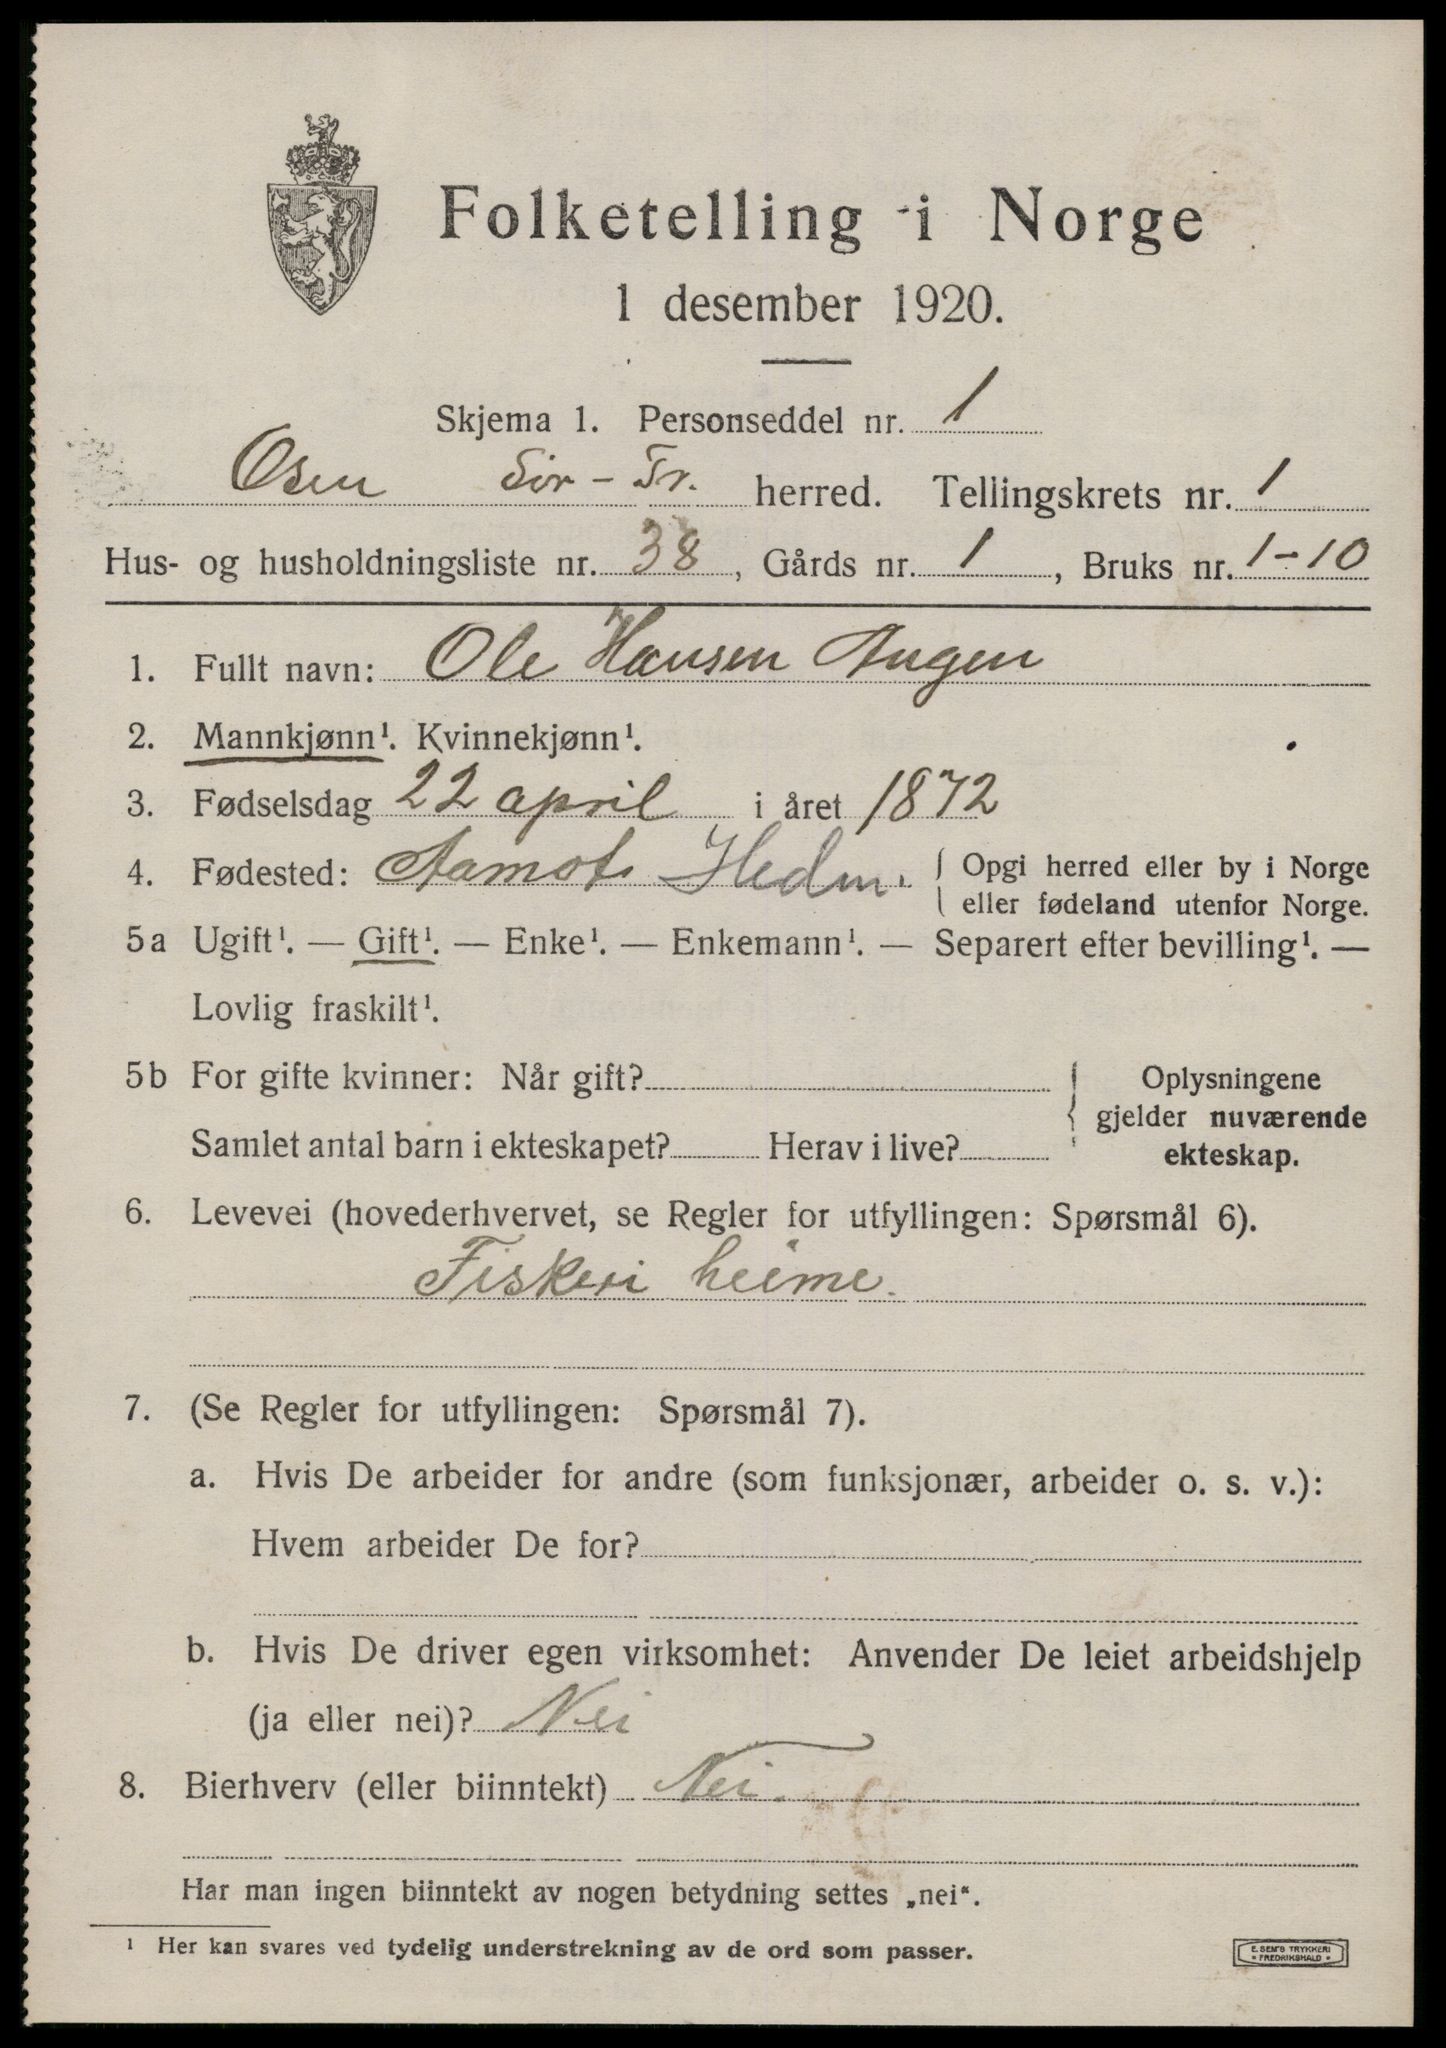 Folketelling i Norge
1 desember 1920.
Skjema 1. Personseddel nr. 1
Osen Sør-Tr. herred. Tellingskrets nr. 1
Hus- og husholdningsliste nr. 38, Gårds nr. 1, Bruks nr. 1-10
1. Fullt navn: Ole Hansen Angen
2. Mannkjønn¹. Kvinnekjønn¹.
3. Fødselsdag 22 april i året 1872
4. Fødested: Aamot Hedm. { Opgi herred eller by i Norge
eller fødeland utenfor Norge.
5a Ugift¹. — Gift¹. — Enke¹. — Enkemann¹. — Separert efter bevilling¹. —
Lovlig fraskilt¹.
5b For gifte kvinner: Når gift?
Samlet antal barn i ekteskapet? Herav i live?
{ Oplysningene
gjelder nuværende
ekteskap.
6. Levevei (hovederhvervet, se Regler for utfyllingen: Spørsmål 6).
Fiskeri heime.
7. (Se Regler for utfyllingen: Spørsmål 7).
a. Hvis De arbeider for andre (som funksjonær, arbeider o. s. v.):
Hvem arbeider De for?
b. Hvis De driver egen virksomhet: Anvender De leiet arbeidshjelp
(ja eller nei)? Nei
8. Bierhverv (eller biinntekt) Nei.
Har man ingen biinntekt av nogen betydning settes „nei“.
¹ Her kan svares ved tydelig understrekning av de ord som passer.
E. SEM'S TRYKKERI
• FREDRIKSHALD •